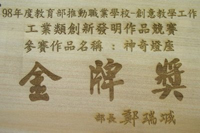 98年度教育部推動職業學校-創意教學工作
工業類創新發明作品競賽
參賽作品名稱：神奇燈座
金牌獎
部長 鄭瑞城